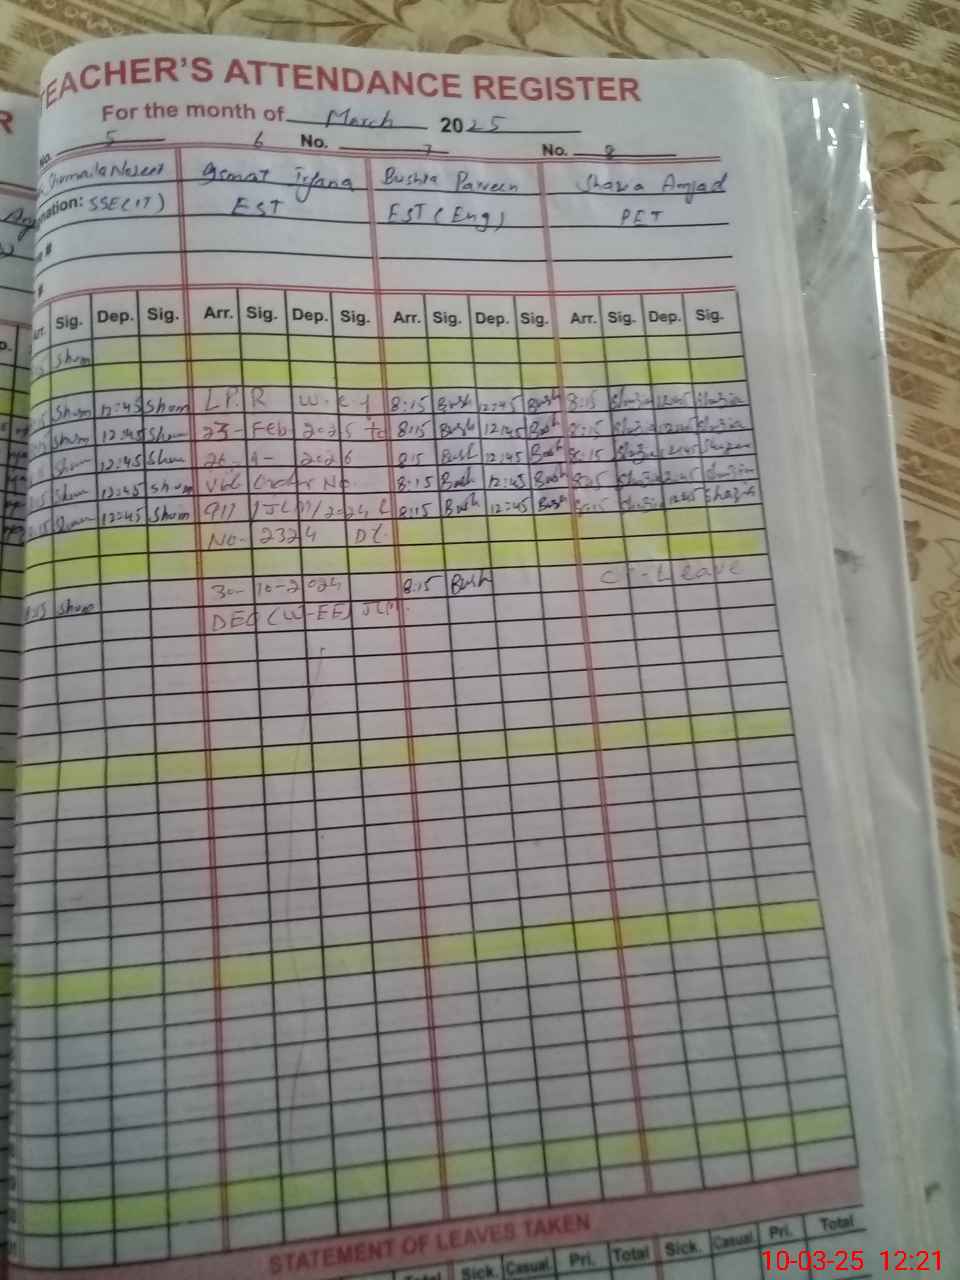 TEACHER'S ATTENDANCE REGISTER
For the month of March 2025
No. 5 6 No. 7 No. 8
Gsmat Irfana Bushra Parveen Shazia Amjad
SSE(IT) EST EST (Eng) PET
Arr. Sig. Dep. Sig. Arr. Sig. Dep. Sig. Arr. Sig. Dep. Sig. Arr. Sig. Dep. Sig.
Shum
Shum 12:45 Shum L.P.R W.e.f 8:15 Bush 12:45 Bush 8:15 Shazia 12:45 Shazia
Shum 12:45 Shum 23- Feb 2025 to 8:15 Bush 12:45 Bush 8:15 Shazia 12:45 Shazia
Shum 12:45 Shum 2026 8:15 Bush 12:45 Bush 8:15 Shazia 12:45 Shazia
Shum 12:45 Shum Vide Order No. 8:15 Bush 12:45 Bush Shazia 12:45 Shazia
Shum 12:45 Shum 911 8:15 Bush 12:45 Bush 8:15 Shazia 12:45 Shazia
No- 2324 Dt.
Shum 30-10-2024 8:15 Bush Leave
DEO (W-EE) JLM.
STATEMENT OF LEAVES TAKEN
Total Sick. Casual Pri. Total Sick. Casual Pri. Total
10-03-25 12:21